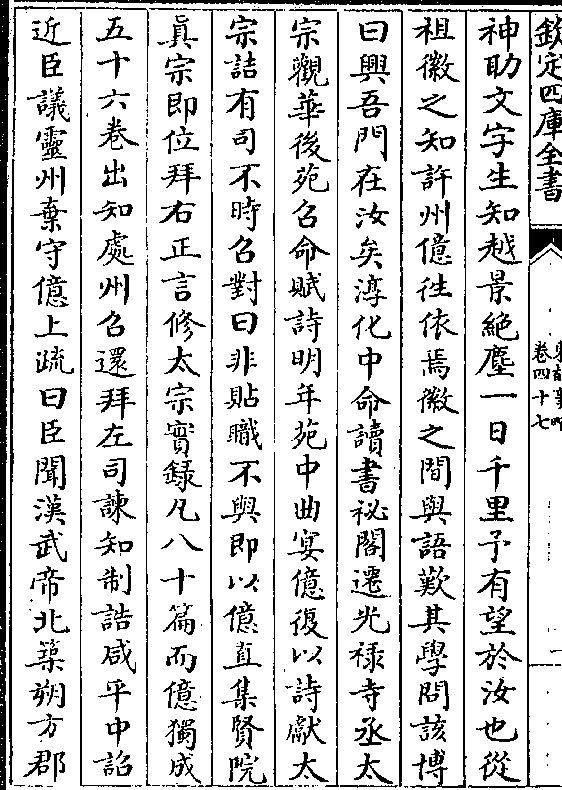 欽定四庫全書
卷四十七
神助文字生知越景絕塵一日千里予有望於汝也從
祖徽之知許州億往依焉徽之間與語歎其學問該博
曰興吾門在汝矣淳化中命讀書秘閣遷光祿寺丞太
宗觀華後苑召命賦詩明年苑中曲宴億復以詩獻太
宗詰有司不時召對曰非貼職不與即以億直集賢院
真宗即位拜右正言修太宗實錄凡八十篇而億獨成
五十六卷出知處州召還拜左司諫知制誥咸平中詔
近臣議靈州棄守億上疏曰臣聞漢武帝北築朔方郡